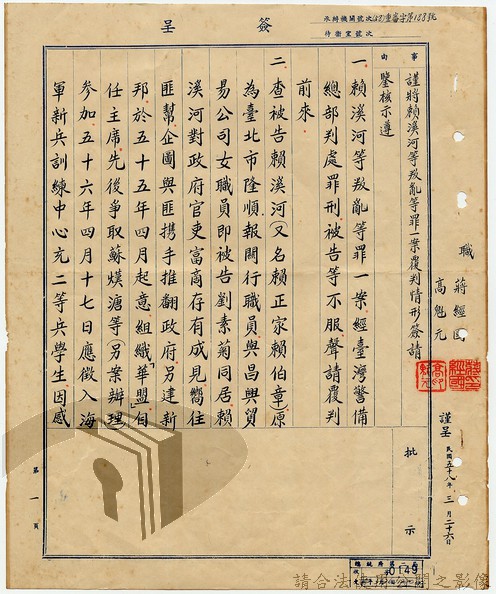 簽呈
承辦機關號次(58)重審字第128號
侍衛室號次
事由
謹將賴溪河等叛亂等罪一案覆判情形簽請
鑒核示遵
職 蔣經國
高魁元
謹呈 民國五十八年 三月二十六日
批示
一、賴溪河等叛亂等罪一案經臺灣警備
總部判處罪刑被告等不服聲請覆判
前來
二、查被告賴溪河(又名賴正家賴伯章)原
為臺北市隆順報關行職員與昌興貿
易公司女職員即被告劉素菊同居賴
溪河對政府官吏富商存有成見嚮往
匪幫企圖與匪携手推翻政府另建新
邦於五十五年四月起意組織「華盟」自
任主席先後爭取蘇煐溏等(另案辦理)
參加五十六年四月十七日應徵入海
軍新兵訓練中心充二等兵學生因感
第一頁
0149
請合法使用公開之影像